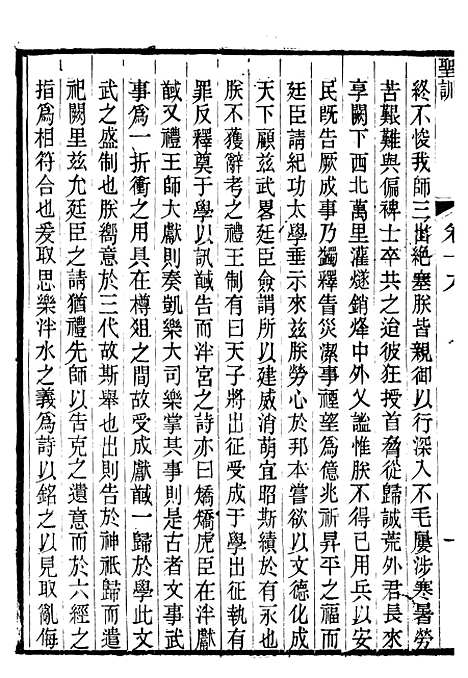 聖訓
卷十九
終不悛我師三出絕塞朕皆親御以行深入不毛屢涉寒暑勞
苦艱難與偏裨士卒共之迨彼狂授首脅從歸誠荒外君長來
享闕下西北萬里灌燧銷烽中外乂謐惟朕不得已用兵以安
民既告厥成事乃蠲釋眚災潔事禋望為億兆祈昇平之福而
廷臣請紀功太學垂示來茲朕勞心於邦本嘗欲以文德化成
天下顧茲武畧廷臣僉謂所以建威消萌宜昭斯績於有永也
朕不獲辭考之禮王制有曰天子將出征受成于學出征執有
罪反釋奠于學以訊馘告而泮宮之詩亦曰矯矯虎臣在泮獻
馘又禮王師大獻則奏凱樂大司樂掌其事則是古者文事武
事為一折衝之用具在樽俎之間故受成獻馘一歸於學此文
武之盛制也朕嚮意於三代故斯舉也出則告於神祇歸而遣
祀闕里茲允廷臣之請猶禮先師以告克之遺意而于六經之
指為相符合也爰取思樂泮水之義為詩以銘之以見取亂侮